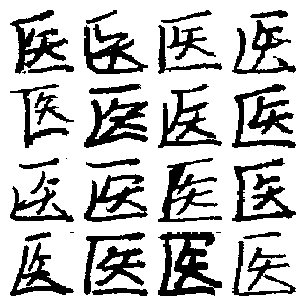 医医医医
医医医医
医医医医
医医医医